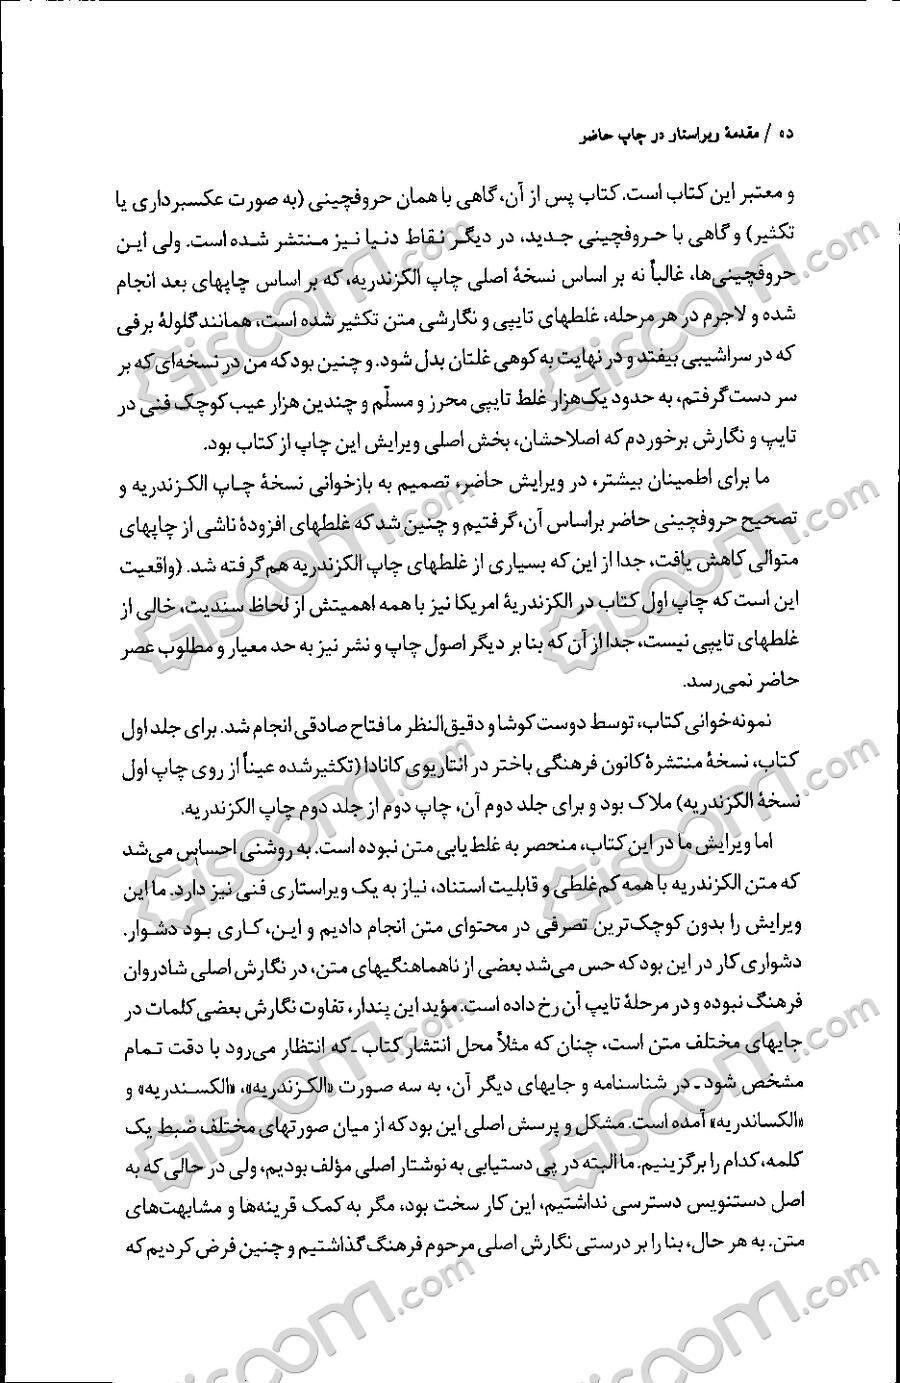 ده / مقدمهٔ ویراستار در چاپ حاضر
و معتبر این کتاب است. کتاب پس از آن، گاهی با همان حروفچینی (به صورت عکسبرداری یا
تکثیر) و گاهی با حروفچینی جدید، در دیگر نقاط دنیا نیز منتشر شده است. ولی این
حروفچینی‌ها، غالباً نه بر اساس نسخهٔ اصلی چاپ الکزندریه، که بر اساس چاپهای بعد انجام
شده و لاجرم در هر مرحله، غلطهای تایپی و نگارشی متن تکثیر شده است، همانند گلولهٔ برفی
که در سراشیبی بیفتد و در نهایت به کوهی غلتان بدل شود. و چنین بود که من در نسخه‌ای که بر
سر دست گرفتم، به حدود یک‌هزار غلط تایپی محرز و مسلّم و چندین هزار عیب کوچک فنی در
تایپ و نگارش برخوردم که اصلاحشان، بخش اصلی ویرایش این چاپ از کتاب بود.
ما برای اطمینان بیشتر، در ویرایش حاضر، تصمیم به بازخوانی نسخهٔ چاپ الکزندریه و
تصحیح حروفچینی حاضر براساس آن، گرفتیم و چنین شد که غلطهای افزودهٔ ناشی از چاپهای
متوالی کاهش یافت، جدا از این که بسیاری از غلطهای چاپ الکزندریه هم گرفته شد. (واقعیت
این است که چاپ اول کتاب در الکزندریهٔ امریکا نیز با همه اهمیتش از لحاظ سندیت، خالی از
غلطهای تایپی نیست، جدا از آن که بنا بر دیگر اصول چاپ و نشر نیز به حد معیار و مطلوب عصر
حاضر نمی‌رسد.
نمونه‌خوانی کتاب، توسط دوست کوشا و دقیق‌النظر ما فتاح صادقی انجام شد. برای جلد اول
کتاب، نسخهٔ منتشرهٔ کانون فرهنگی باختر در انتاریوی کانادا (تکثیرشده عیناً از روی چاپ اول
نسخهٔ الکزندریه) ملاک بود و برای جلد دوم آن، چاپ دوم از جلد دوم چاپ الکزندریه.
اما ویرایش ما در این کتاب، منحصر به غلط‌یابی متن نبوده است. به روشنی احساس می‌شد
که متن الکزندریه با همه کم‌غلطی و قابلیت استناد، نیاز به یک ویراستاری فنی نیز دارد. ما این
ویرایش را بدون کوچک‌ترین تصرفی در محتوای متن انجام دادیم و این، کاری بود دشوار.
دشواری کار در این بود که حس می‌شد بعضی از ناهماهنگیهای متن، در نگارش اصلی شادروان
فرهنگ نبوده و در مرحلهٔ تایپ آن رخ داده است. مؤید این پندار، تفاوت نگارش بعضی کلمات در
جایهای مختلف متن است، چنان که مثلاً محل انتشار کتاب ـ که انتظار می‌رود با دقت تمام
مشخص شود ـ در شناسنامه و جایهای دیگر آن، به سه صورت «الکزندریه»، «الکسندریه» و
«الکساندریه» آمده است. مشکل و پرسش اصلی این بود که از میان صورتهای مختلف ضبط یک
کلمه، کدام را برگزینیم. ما البته در پی دستیابی به نوشتار اصلی مؤلف بودیم، ولی در حالی که به
اصل دستنویس دسترسی نداشتیم، این کار سخت بود، مگر به کمک قرینه‌ها و مشابهت‌های
متن. به هر حال، بنا را بر درستی نگارش اصلی مرحوم فرهنگ گذاشتیم و چنین فرض کردیم که
Giscoom.com